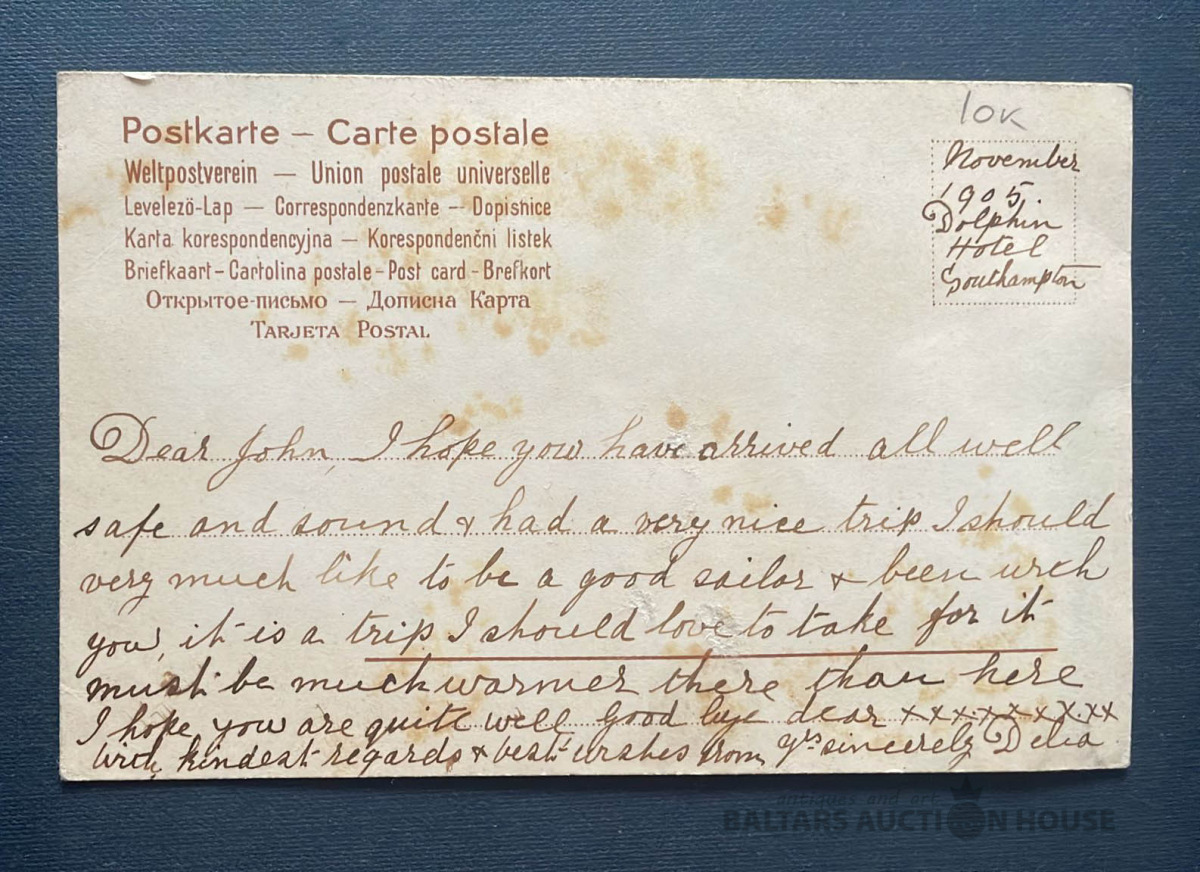 10K
Postkarte — Carte postale
Weltpostverein — Union postale universelle
Levelezö-Lap — Correspondenzkarte — Dopisnice
Karta korespondencyjna — Korespondenčni listek
Briefkaart - Cartolina postale - Post card - Brefkort
Открытое-письмо — Дописна Карта
Tarjeta Postal
November
1905
Dolphin
Hotel
Southampton
Dear John, I hope you have arrived all well
safe and sound & had a very nice trip I should
very much like to be a good sailor & been with
you, it is a trip I should love to take for it
must be much warmer there than here
I hope you are quite well Good bye dear xxxxxxxxx
With kindest regards & best wishes from yrs sincerely Delia
antiques and art
BALTARS AUCTION HOUSE